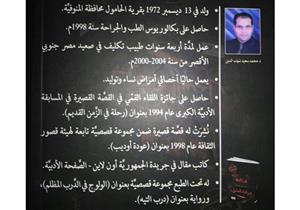 د. محمد سعيد شهاب الدين
• ولد في 13 ديسمبر 1972 بقرية الحامول محافظة المنوفيَّة.
• حاصل على بكالوريوس الطب والجراحة سنة 1998م.
• عمل لمدَّة أربعة سنوات طبيب تكليف في صعيد مصر جنوبي
الأقصر من سنة 2000-2004م.
• يعمل حاليًا أخصائي أمراض نساء وتوليد.
• حاصل على جائزة اللقاء القمِّي في القصَّة القصيرة في المسابقة
الأدبيَّة الكبرى عام 1994 بعنوان (رحلة في الزَّمن القديم).
• نُشِرَتْ له قصَّة قصيرة ضمن مجموعة قصصيَّة تابعة لهيئة قصور
الثقافة عام 1998 بعنوان (عودة أوديب).
• كاتب مقال في جريدة الجمهوريَّة أون لاين - الصفحة الأدبيَّة.
• له تحت الطبع مجموعة قصصيَّة بعنوان (الولوج في الدَّرب المظلم)،
ورواية بعنوان (درب التيه).